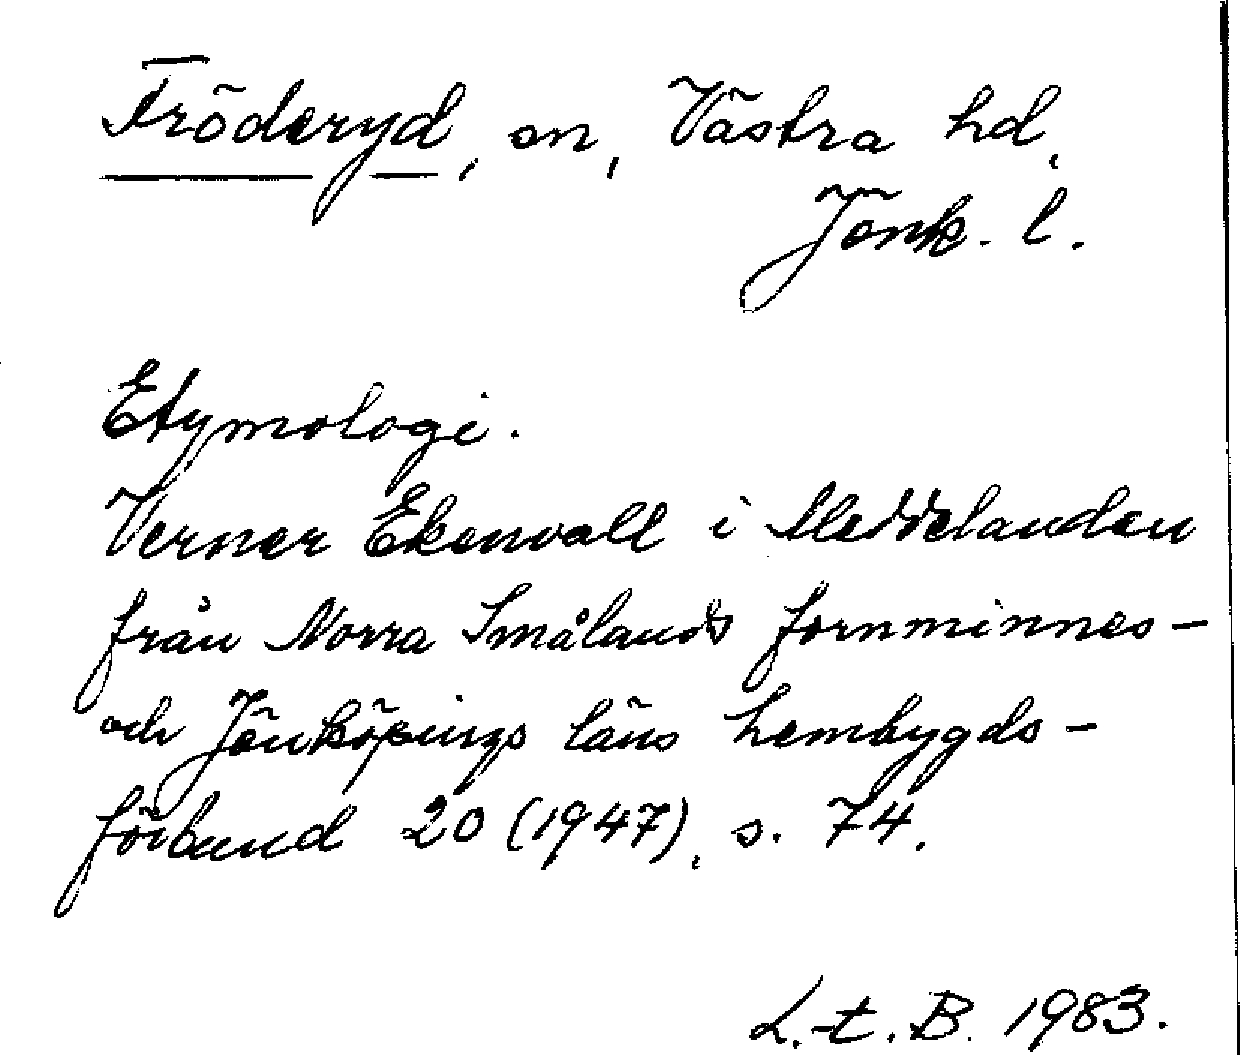 Fröderyd, sn, Västra hd,
Jönk. l.
Etymologi.
Verner Ekenvall i Meddelanden
från Norra Smålands fornminnes-
och Jönköpings läns hembygds-
förbund 20 (1947), s. 74.
L.-t. B. 1983.